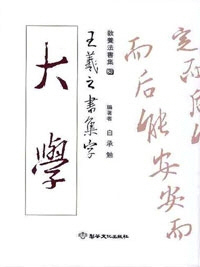 敎養法書集
王羲之書集字
大學
編著者 白承勉
定而
而后能安安而
文化出版社